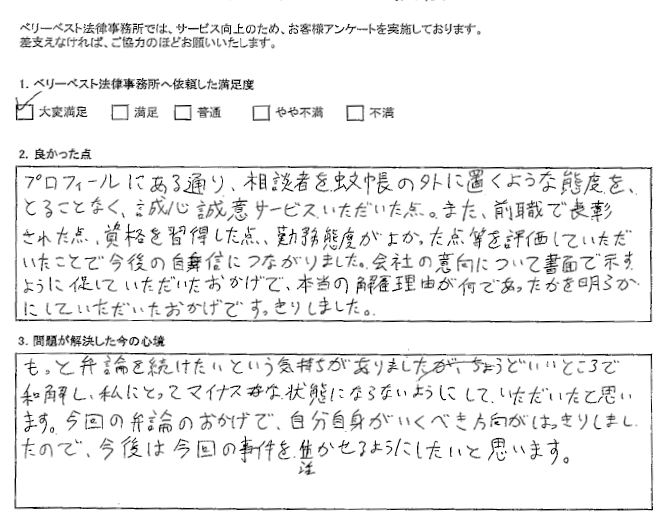 ベリーベスト法律事務所では、サービス向上のため、お客様アンケートを実施しております。
差支えなければ、ご協力のほどお願いいたします。
1. ベリーベスト法律事務所へ依頼した満足度
☑ 大変満足 □ 満足 □ 普通 □ やや不満 □ 不満
2. 良かった点
プロフィールにある通り、相談者を蚊帳の外に置くような態度を、
とることなく、誠心誠意サービスいただいた点。また、前職で表彰
された点、資格を習得した点、勤務態度がよかった点等を評価していただ
いたことで今後の自信につながりました。会社の意向について書面で示す
ように促していただいたおかげで、本当の解雇理由が何であったかを明らか
にしていただいたおかげですっきりしました。
3. 問題が解決した今の心境
もっと弁論を続けたいという気持ちがありましたが、ちょうどいいところで
和解し、私にとってマイナスな状態にならないようにして、いただいたと思い
ます。今回の弁論のおかげで、自分自身がいくべき方向がはっきりしまし
たので、今後は今回の事件を活かせるようにしたいと思います。